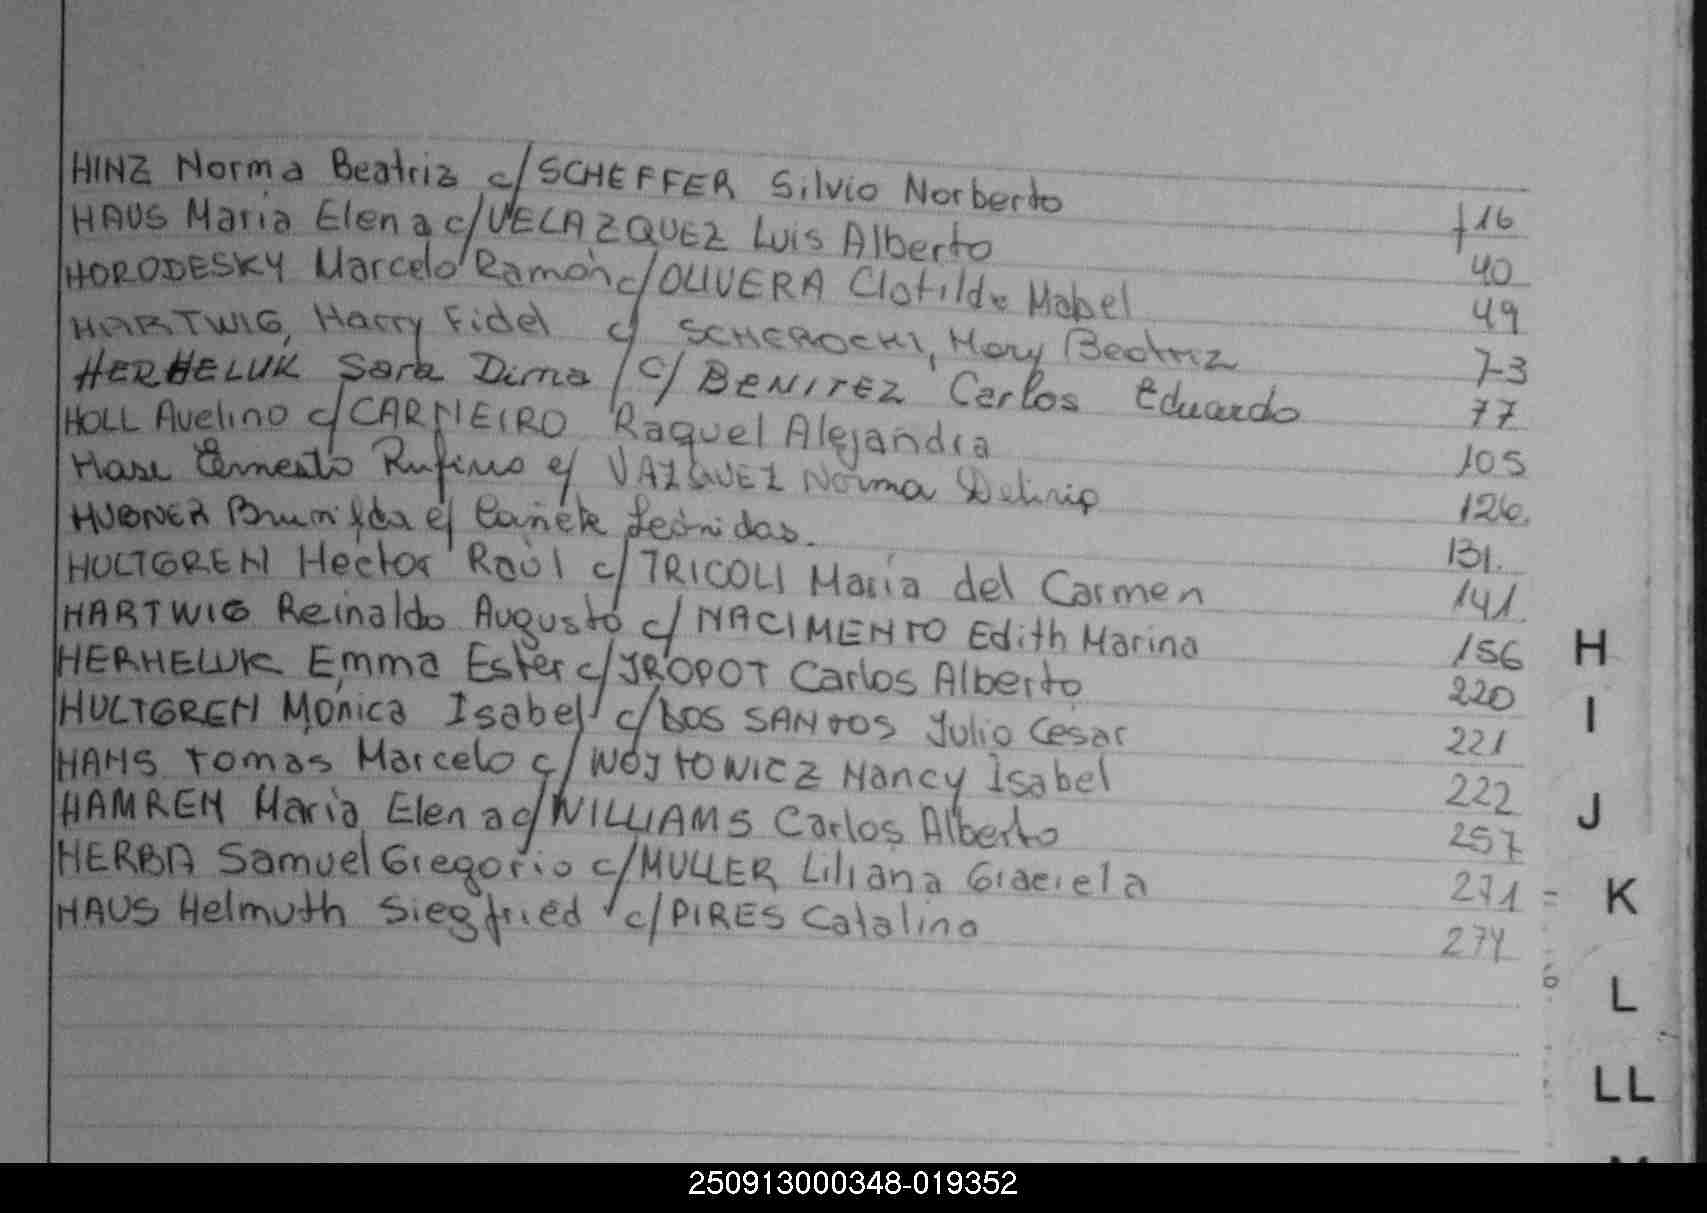 HINZ Norma Beatriz c/ SCHEFFER Silvio Norberto 16
HAUS Maria Elena c/ VELAZQUEZ Luis Alberto 40
HORODESKY Marcelo Ramón c/ OLIVERA Clotilde Mabel 49
HARTWIG, Harry Fidel c/ SCHEROCHI, Mary Beatriz 73
HERHELUK Sara Dirna c/ BENITEZ Carlos Eduardo 77
HOLL Avelino c/ CARNEIRO Raquel Alejandra 105
Hase Ernesto Rufino c/ VAZQUEZ Norma 126.
HUBNER Brunilda c/ Cañete Leónidas. 131.
HULTGREN Hector Raúl c/ TRICOLI Maria del Carmen 141.
HARTWIG Reinaldo Augusto c/ NACIMENTO Edith Marina 156
HERHELUK Emma Ester c/ JROPOT Carlos Alberto 220
HULTGREN Mónica Isabel c/ DOS SANTOS Julio Cesar 221
HAHS Tomas Marcelo c/ WOJTOWICZ Nancy Isabel 222
HAMREN Maria Elena c/ WILLIAMS Carlos Alberto 257
HERBA Samuel Gregorio c/ MULLER Liliana Graciela 271
HAUS Helmuth Siegfried c/ PIRES Catalina 274
H
I
J
K
L
LL
250913000348-019352